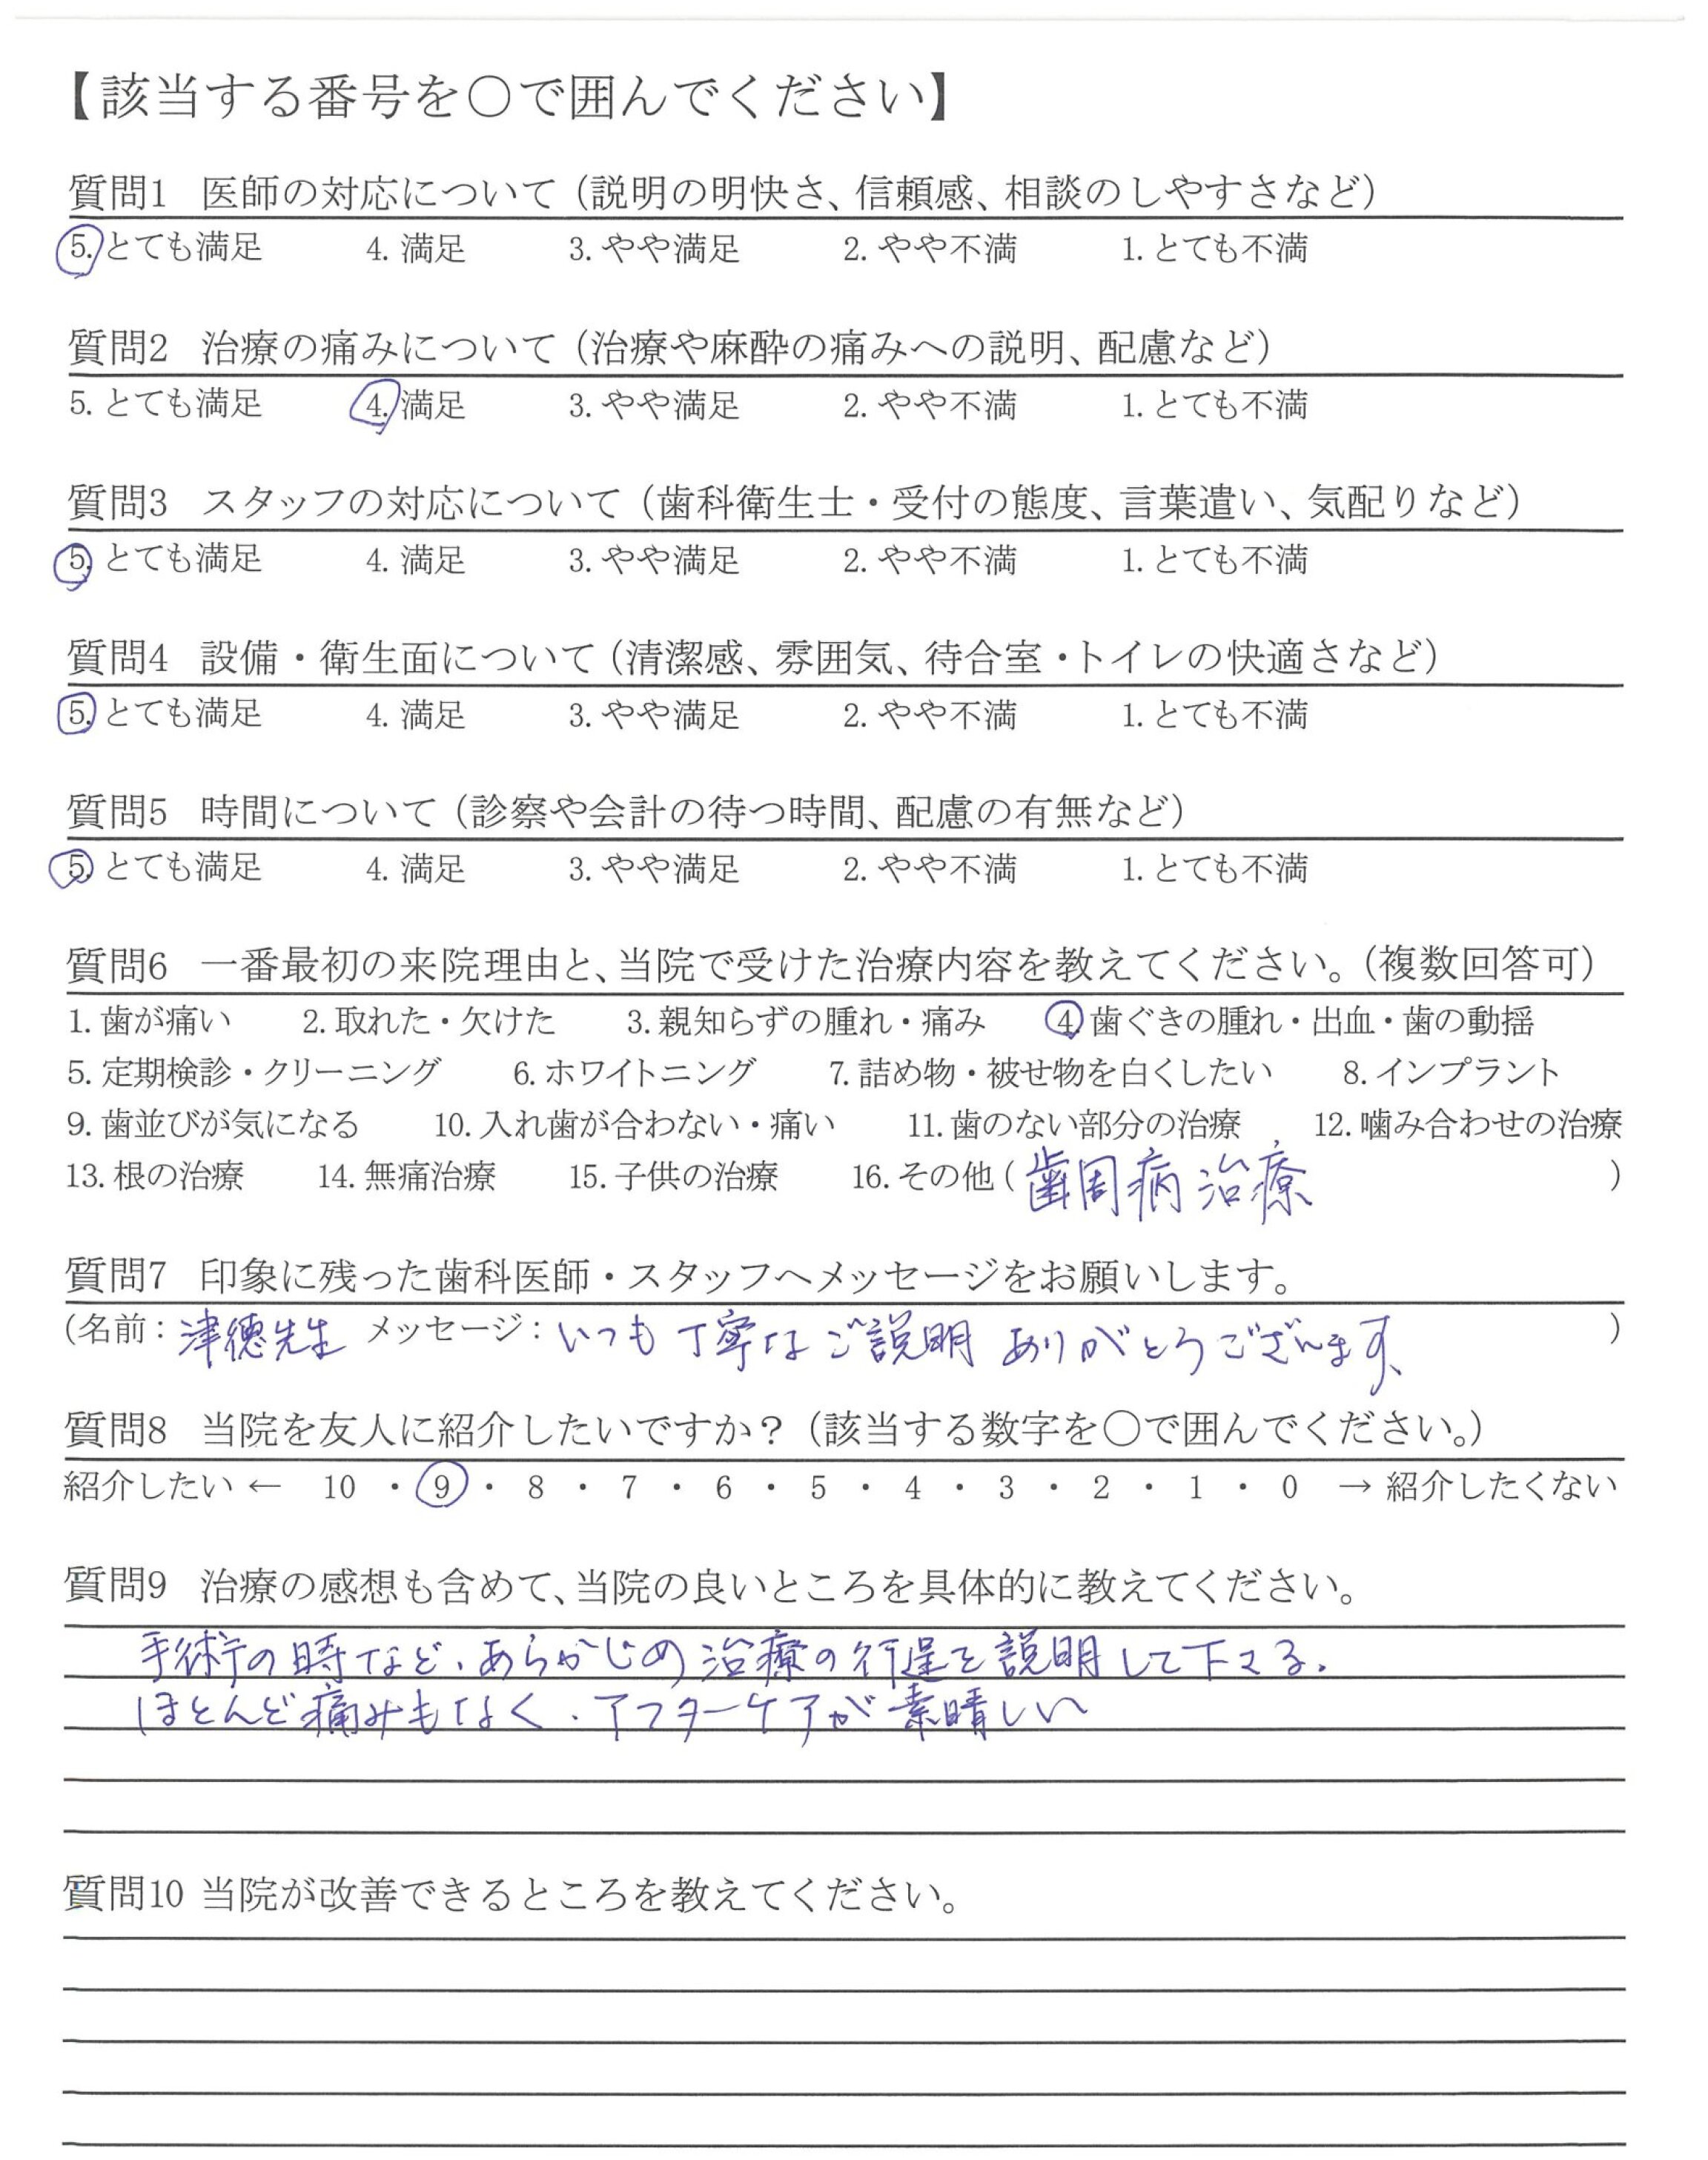 【該当する番号を○で囲んでください】
質問1 医師の対応について（説明の明快さ、信頼感、相談のしやすさなど）
5. とても満足 4. 満足 3. やや満足 2. やや不満 1. とても不満
質問2 治療の痛みについて（治療や麻酔の痛みへの説明、配慮など）
5. とても満足 4. 満足 3. やや満足 2. やや不満 1. とても不満
質問3 スタッフの対応について（歯科衛生士・受付の態度、言葉遣い、気配りなど）
5. とても満足 4. 満足 3. やや満足 2. やや不満 1. とても不満
質問4 設備・衛生面について（清潔感、雰囲気、待合室・トイレの快適さなど）
5. とても満足 4. 満足 3. やや満足 2. やや不満 1. とても不満
質問5 時間について（診察や会計の待つ時間、配慮の有無など）
5. とても満足 4. 満足 3. やや満足 2. やや不満 1. とても不満
質問6 一番最初の来院理由と、当院で受けた治療内容を教えてください。（複数回答可）
1. 歯が痛い 2. 取れた・欠けた 3. 親知らずの腫れ・痛み 4. 歯ぐきの腫れ・出血・歯の動揺
5. 定期検診・クリーニング 6. ホワイトニング 7. 詰め物・被せ物を白くしたい 8. インプラント
9. 歯並びが気になる 10. 入れ歯が合わない・痛い 11. 歯のない部分の治療 12. 噛み合わせの治療
13. 根の治療 14. 無痛治療 15. 子供の治療 16. その他（歯周病治療）
質問7 印象に残った歯科医師・スタッフへメッセージをお願いします。
（名前：津徳先生 メッセージ：いつも丁寧なご説明ありがとうございます、）
質問8 当院を友人に紹介したいですか？（該当する数字を○で囲んでください。）
紹介したい ← 10 ・ 9 ・ 8 ・ 7 ・ 6 ・ 5 ・ 4 ・ 3 ・ 2 ・ 1 ・ 0 → 紹介したくない
質問9 治療の感想も含めて、当院の良いところを具体的に教えてください。
手術の時など、あらかじめ治療の行程を説明して下さる.
ほとんど痛みもなく、アフターケアが素晴しい
質問10 当院が改善できるところを教えてください。